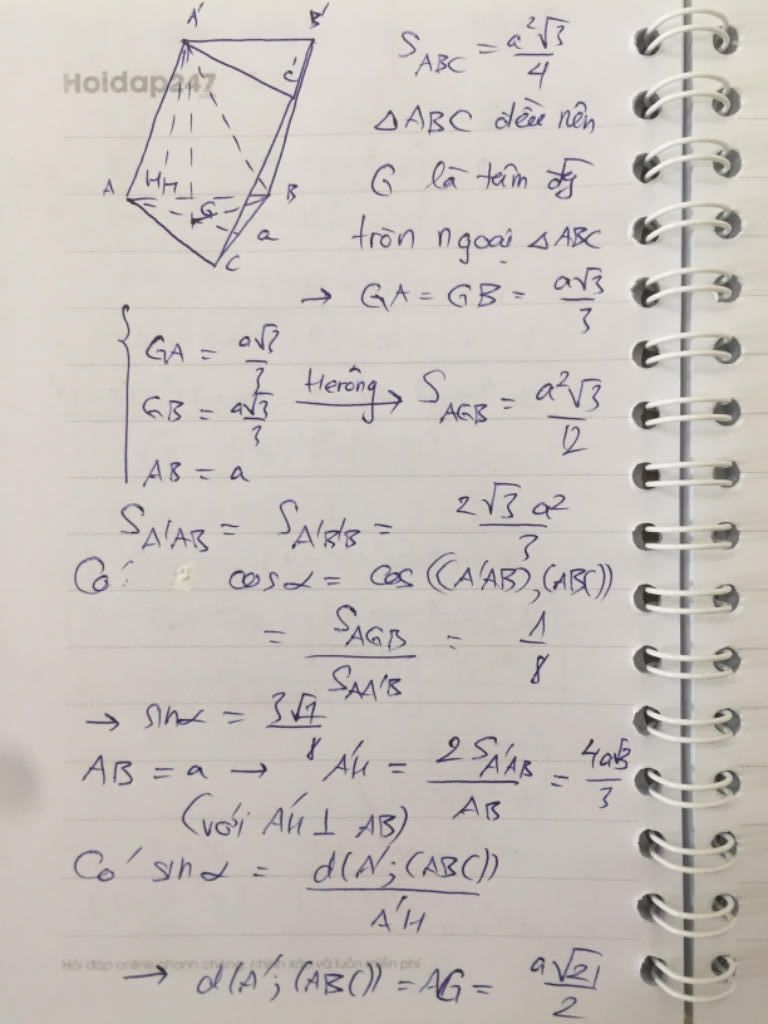 A' B'
C'
Hoidap247
A H H B
G
a
C
S_ABC = a²√3/4
△ABC đều nên
G là tâm đg
tròn ngoại △ABC
→ GA = GB = a√3/3
{ GA = a√3/3
GB = a√3/3 Herông → S_AGB = a²√3/12
AB = a
S_A'AB = S_A'B'B = 2√3 a²/3
Có: cosα = cos((A'AB),(ABC))
= S_AGB/S_AA'B = 1/8
→ sinα = 3√7/8
AB = a → A'H = 2S_A'AB/AB = 4a√3/3
(với A'H ⊥ AB)
Có sinα = d(A';(ABC))/A'H
Hỏi đáp online nhanh chóng, chính xác và luôn miễn phí
→ d(A';(ABC)) = A'G = a√21/2